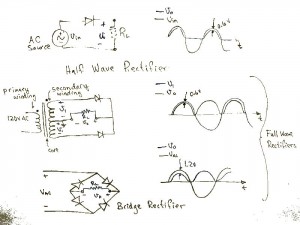 AC
Source
Vin
Vo
RL
— Vo
— Vin
0.6v
t
Half Wave Rectifier
primary
winding
secondary
winding
120vAC
core
V1
Vo
— V1
— Vo
0.6v
t
Full Wave
Rectifiers
Vac
RL
Vo
— Vo
— Vac
1.2v
t
Bridge Rectifier